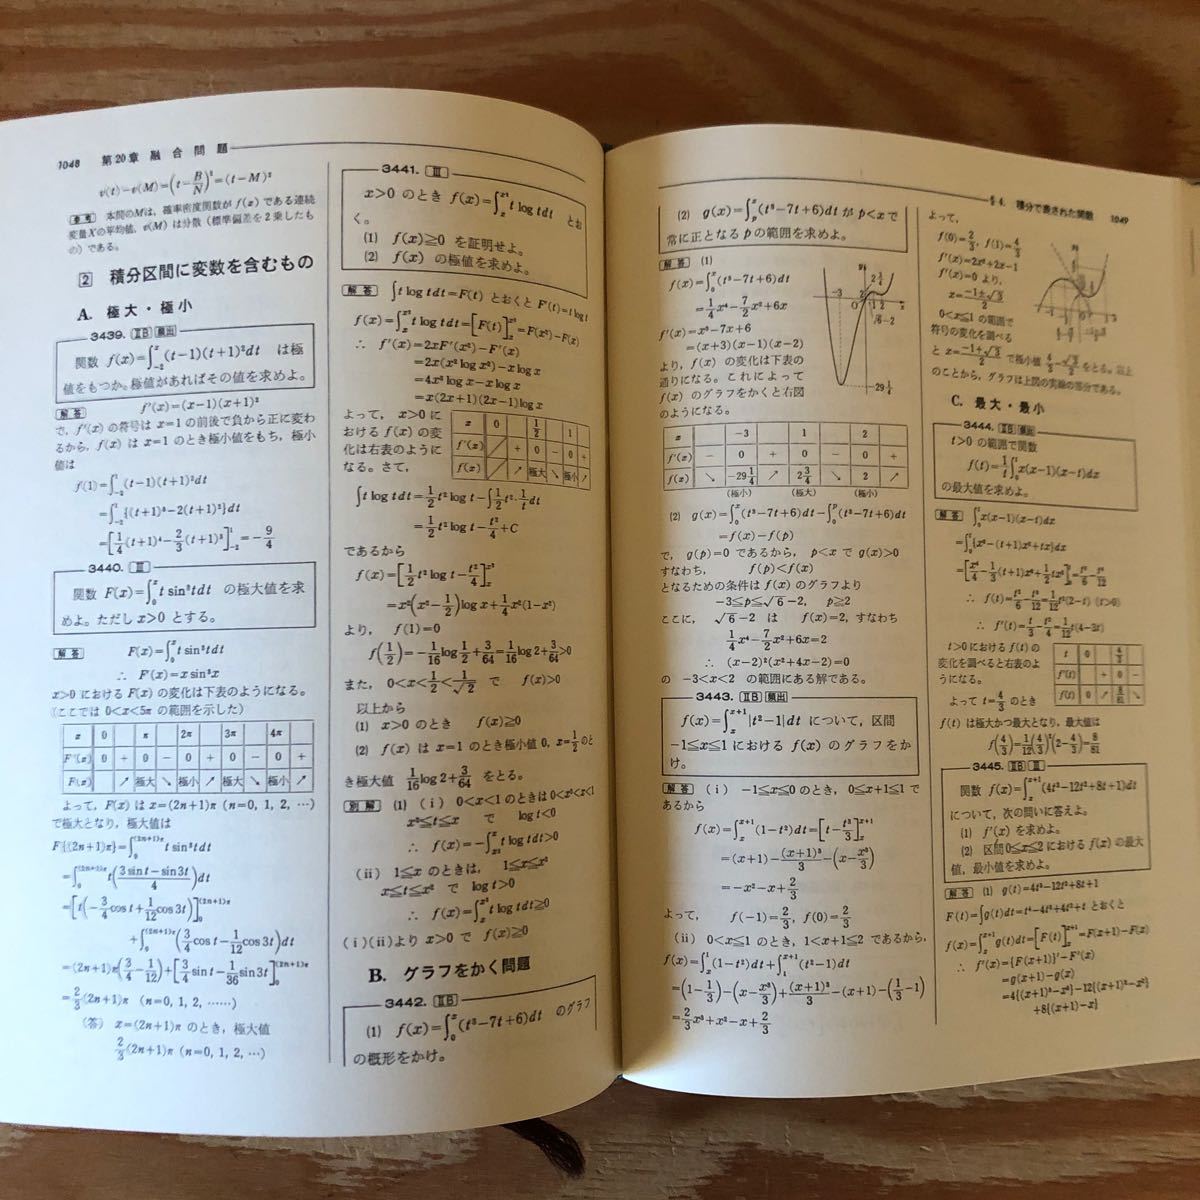 1048 第20章 融合問題
v(t)−v(M)=(t−B/N)²=(t−M)²
参考 本問のMは，確率密度関数が f(x) である連続
変量Xの平均値，v(M) は分散（標準偏差を2乗したも
の）である。
2 積分区間に変数を含むもの
A. 極大・極小
3439. ⅡB 頻出
関数 f(x)=∫_{-2}^{x}(t−1)(t+1)²dt は極
値をもつか。極値があればその値を求めよ。
解答 f′(x)=(x−1)(x+1)²
で，f′(x) の符号は x=1 の前後で負から正に変わ
るから，f(x) は x=1 のとき極小値をもち，極小
値は
f(1)=∫_{-2}^{1}(t−1)(t+1)²dt
=∫_{-2}^{1}{(t+1)³−2(t+1)²}dt
=[1/4(t+1)⁴−2/3(t+1)³]_{-2}^{1}=−9/4
3440. Ⅲ
関数 F(x)=∫_{0}^{x} t sin³t dt の極大値を求
めよ。ただし x>0 とする。
解答 F(x)=∫_{0}^{x} t sin³t dt
∴ F′(x)=x sin³x
x>0 における F(x) の変化は下表のようになる。
(ここでは 0<x<5π の範囲を示した)
x 0 π 2π 3π 4π
F′(x) 0 + 0 − 0 + 0 − 0 +
F(x) ↗ 極大 ↘ 極小 ↗ 極大 ↘ 極小 ↗
よって，F(x) は x=(2n+1)π (n=0, 1, 2, …)
で極大となり，極大値は
F{(2n+1)π}=∫_{0}^{(2n+1)π} t sin³t dt
=∫_{0}^{(2n+1)π} t(3 sin t−sin 3t/4)dt
=[t(−3/4 cos t+1/12 cos 3t)]_{0}^{(2n+1)π}
+∫_{0}^{(2n+1)π}(3/4 cos t−1/12 cos 3t)dt
=(2n+1)π(3/4−1/12)+[3/4 sin t−1/36 sin 3t]_{0}^{(2n+1)π}
=2/3(2n+1)π (n=0, 1, 2, ……)
(答) x=(2n+1)π のとき，極大値
2/3(2n+1)π (n=0, 1, 2, …)
3441. Ⅲ
x>0 のとき f(x)=∫_{x}^{x²} t log t dt とお
く。
(1) f(x)≧0 を証明せよ。
(2) f(x) の極値を求めよ。
解答 ∫t log t dt=F(t) とおくと F′(t)=t log t
f(x)=∫_{x}^{x²} t log t dt=[F(t)]_{x}^{x²}=F(x²)−F(x)
∴ f′(x)=2xF′(x²)−F′(x)
=2x(x² log x²)−x log x
=4x³ log x−x log x
=x(2x+1)(2x−1)log x
よって，x>0 に
おける f(x) の変
化は右表のように
なる。さて，
x 0 1/2 1
f′(x) + 0 − 0 +
f(x) ↗ 極大 ↘ 極小 ↗
∫t log t dt=1/2 t² log t−∫1/2 t²·1/t dt
=1/2 t² log t−t²/4+C
であるから
f(x)=[1/2 t² log t−t²/4]_{x}^{x²}
=x²(x²−1/2)log x+1/4 x²(1−x²)
より，f(1)=0
f(1/2)=−1/16 log 1/2+3/64=1/16 log 2+3/64>0
また，0<x<1/2<1/√2 で f(x)>0
以上から
(1) x>0 のとき f(x)≧0
(2) f(x) は x=1 のとき極小値 0，x=1/2 のと
き極大値 1/16 log 2+3/64 をとる。
別解 (1) (i) 0<x<1 のときは 0<x²<x<1
x²≦t≦x で log t<0
∴ f(x)=−∫_{x²}^{x} t log t dt>0
(ii) 1≦x のときは，1≦x≦x²
x≦t≦x² で log t>0
∴ f(x)=∫_{x}^{x²} t log t dt≧0
(i)(ii)より x>0 で f(x)≧0
B. グラフをかく問題
3442. ⅡB
(1) f(x)=∫_{0}^{x}(t³−7t+6)dt のグラフ
の概形をかけ。
§4. 積分で表された関数 1049
(2) g(x)=∫_{p}^{x}(t³−7t+6)dt が p<x で
常に正となる p の範囲を求めよ。
解答 (1)
f(x)=∫_{0}^{x}(t³−7t+6)dt
=1/4 x⁴−7/2 x²+6x
f′(x)=x³−7x+6
=(x+3)(x−1)(x−2)
より，f(x) の変化は下表の
通りになる。これによって
f(x) のグラフをかくと右図
のようになる。
y 2 3/4 −3 O 1 2 x √6−2 −29 1/4
x −3 1 2
f′(x) − 0 + 0 − 0 +
f(x) ↘ −29 1/4 ↗ 2 3/4 ↘ 2 ↗
(極小) (極大) (極小)
(2) g(x)=∫_{0}^{x}(t³−7t+6)dt−∫_{0}^{p}(t³−7t+6)dt
=f(x)−f(p)
で，g(p)=0 であるから，p<x で g(x)>0
すなわち， f(p)<f(x)
となるための条件は f(x) のグラフより
−3≦p≦√6−2, p≧2
ここに，√6−2 は f(x)=2，すなわち
1/4 x⁴−7/2 x²+6x=2
∴ (x−2)²(x²+4x−2)=0
の −3<x<2 の範囲にある解である。
3443. ⅡB 頻出
f(x)=∫_{x}^{x+1}|t²−1|dt について，区間
−1≦x≦1 における f(x) のグラフをか
け。
解答 (i) −1≦x≦0 のとき，0≦x+1≦1 で
あるから
f(x)=∫_{x}^{x+1}(1−t²)dt=[t−t³/3]_{x}^{x+1}
=(x+1)−(x+1)³/3−(x−x³/3)
=−x²−x+2/3
よって， f(−1)=2/3, f(0)=2/3
(ii) 0<x≦1 のとき，1<x+1≦2 であるから，
f(x)=∫_{x}^{1}(1−t²)dt+∫_{1}^{x+1}(t²−1)dt
=(1−1/3)−(x−x³/3)+(x+1)³/3−(x+1)−(1/3−1)
=2/3 x³+x²−x+2/3
よって，
f(0)=2/3, f(1)=4/3
f′(x)=2x²+2x−1
f′(x)=0 より，
x=−1±√3/2
0<x≦1 の範囲で
符号の変化を調べる
と x=−1+√3/2 で極小値 4/3−√3/2 をとる。以上
のことから，グラフは上図の実線の部分である。
C. 最大・最小
3444. ⅡB 頻出
t>0 の範囲で関数
f(t)=1/t∫_{0}^{t} x(x−1)(x−t)dx
の最大値を求めよ。
解答 ∫_{0}^{t} x(x−1)(x−t)dx
=∫_{0}^{t}{x³−(t+1)x²+tx}dx
=[x⁴/4−1/3(t+1)x³+1/2 tx²]_{0}^{t}=t³/6−t⁴/12
∴ f(t)=t²/6−t³/12=1/12 t²(2−t) (t>0)
∴ f′(t)=t/3−t²/4=1/12 t(4−3t)
t>0 における f(t) の
変化を調べると右表のよ
うになる。
よって t=4/3 のとき
t 0 4/3
f′(t) + 0 −
f(t) 0 ↗ 8/81 ↘
f(t) は極大かつ最大となり，最大値は
f(4/3)=1/12(4/3)²(2−4/3)=8/81
3445. ⅡB Ⅲ
関数 f(x)=∫_{x}^{x+1}(4t³−12t²+8t+1)dt
について，次の問いに答えよ。
(1) f′(x) を求めよ。
(2) 区間 0≦x≦2 における f(x) の最大
値，最小値を求めよ。
解答 (1) g(t)=4t³−12t²+8t+1
F(t)=∫g(t)dt=t⁴−4t³+4t²+t とおくと
f(x)=∫_{x}^{x+1} g(t)dt=[F(t)]_{x}^{x+1}=F(x+1)−F(x)
∴ f′(x)={F(x+1)}′−F′(x)
=g(x+1)−g(x)
=4{(x+1)³−x³}−12{(x+1)²−x²}
+8{(x+1)−x}